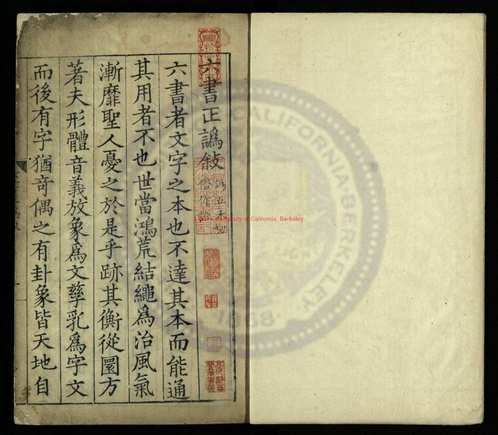 六書正譌敍
六書者文字之本也不達其本而能通
其用者不也世當鴻荒結繩為治風氣
漸靡聖人憂之於是乎跡其衡從圜方
著夫形體音義放象為文孳乳為字文
而後有字猶奇偶之有卦象皆天地自
University of California, Berkeley
CALIFORNIA
BERKELEY
1868